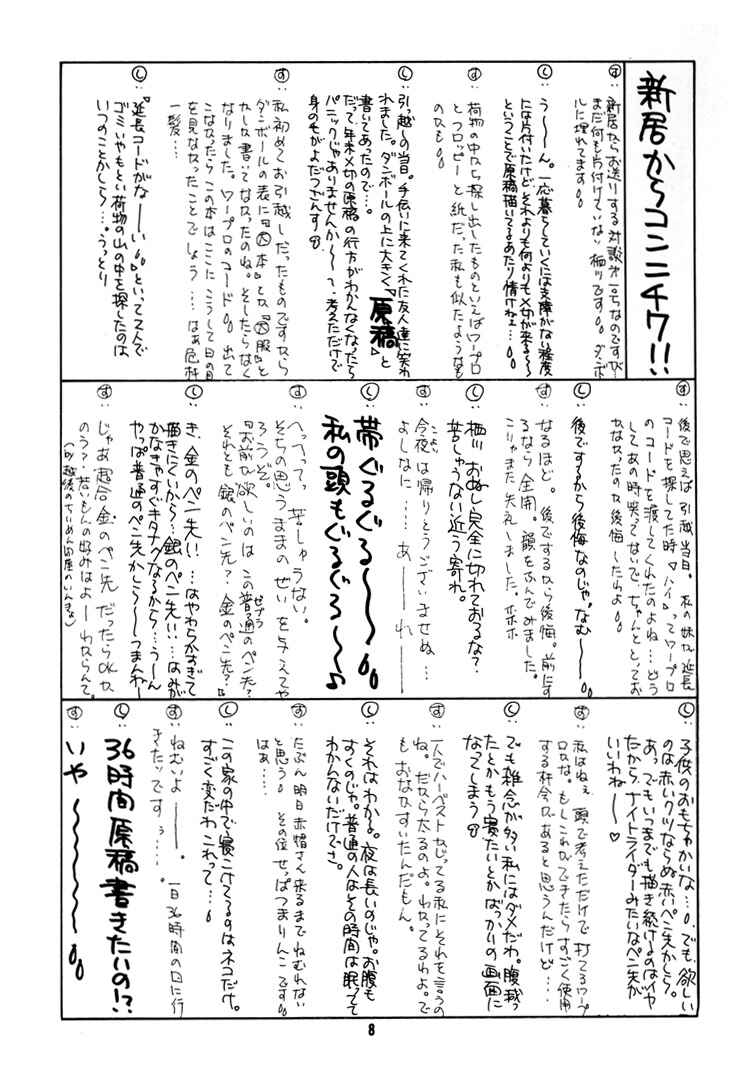 新居からコンニチワ!!
す:新居からお送りする対談第一号なのですが…
まだ何も片付けていない栖川です。ダンボー
ルに埋れてます。
し:うーーん。一応暮していくには支障がない程度
には片付いたけどそれよりも何よりも〆切が来る〜〜
ということで原稿描いてるあたり情けねェ…。
す:荷物の中から探し出したものといえばワープロ
とフロッピーと紙だった私も似たようなも
のかも。
し:引っ越しの当日。手伝いに来てくれた友人達に笑わ
れました。ダンボールの上に大きく『原稿』と
書いてあったので…。
だって、年末〆切の原稿の行方がわかんなくなったら
パニックじゃありませんか〜〜て、考えただけで
身の毛がよだつざんす
す:私初めてお引越しだったものですから
ダンボールの表に『本』とか『服』と
かしか書いてなかったのね。そしたらなく
なりました。ワープロのコード。出て
こなかったらこの本はここにこうして日の目
を見なかったことでしょう……はぁ危機
一髪…。
し:『延長コードがなーーい』といって2人で
ゴミいやもとい荷物の山の中を探したのは
いつのことかしら…。うっとり
す:後で思えば引越し当日。私の妹が延長
コードを探してた時「ハイ」ってワープロ
のコードを渡してくれたのよね…どう
してあの時笑ってないで、ちゃんととってお
かなかったのか後悔したわよ
し:後でするから後悔なのじゃ。なむ〜〜
す:なるほど。後でするから後悔。前にす
るなら全開。韻をふんでみました。
こりゃまた失礼しました。ホホホ
し:栖川、おぬし完全に切れておるな?
苦しゅうない近う寄れ。
す:今夜は帰りとうございませぬ…
よしなに……あーーれーー
し:帯ぐるぐる〜〜〜
私の頭もぐるぐる〜〜〜♪
す:へっへっ、苦しゅうない。
そちの思うままのぜいを与えてや
ろうぞ。
『お前が欲しいのはこの普通のペン先?
それとも銀のペン先?金のペン先?』
し:き、金のペン先い…はやわらかすぎて
描きにくいから…銀のペン先い…はみが
かなきゃすぐキタナクなるから…うーん
やっぱ普通のペン先かしら〜〜つまんねー
す:じゃあ超合金のペン先だったらOKか
のう?若いもんの好みはよーわからんて。
(by越後のちりめん問屋のいんきょ)
し:子供のおもちゃかいな…。でも、欲しい
のは赤いクツならぬ赤いペン先かしら。
あっ、でもいつまでも描き続けるのはイヤ
だから、ナイトライダーみたいなペン先が
いいわね〜♡
す:私はねぇ、頭で考えただけで打てるワープ
ロかな。もしこれができたらすごく使用
する機会があると思うんだけど……
し:でも雑念が多い私にはダメだわ。腹減っ
たとかもう寝たいとかばっかりの画面に
なってしまう
す:一人でハーベストかじってる私にそれを言うの
ね。だから太るのよ。わかってるわよ。で
もおなかすいたんだもん。
し:それはわかる。夜は長いのじゃ。お腹も
すくのじゃ。普通の人はその時間は眠ってて
わかんないだけでさ。
す:たぶん明日赤帽さん来るまでねむれない
と思う。その位せっぱつまりんこです
はぁ…
し:この家の中で寝こけてるのはネコだけ。
すごく変だわこれって…。
す:ねむいよーー。一日36時間の国に行
きたいですぅ……。
し:36時間原稿書きたいの!?
す:いや〜〜〜〜
8